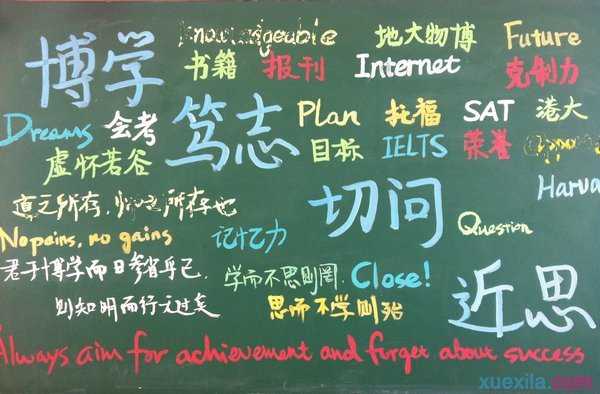 博学 knowledgeable 地大物博 Future
书籍 报刊 Internet 克制力
Dreams 会考 笃志 Plan 托福 SAT 港大
虚怀若谷 目标 IELTS 荣誉
道之所存,师之所存也 切问 Harva
No pains, no gains 记忆力 Question
君子博学而日参省乎己, 学而不思则罔 Close! 近思
则知明而行无过矣 思而不学则殆
Always aim for achievement and forget about success
xuexila.com